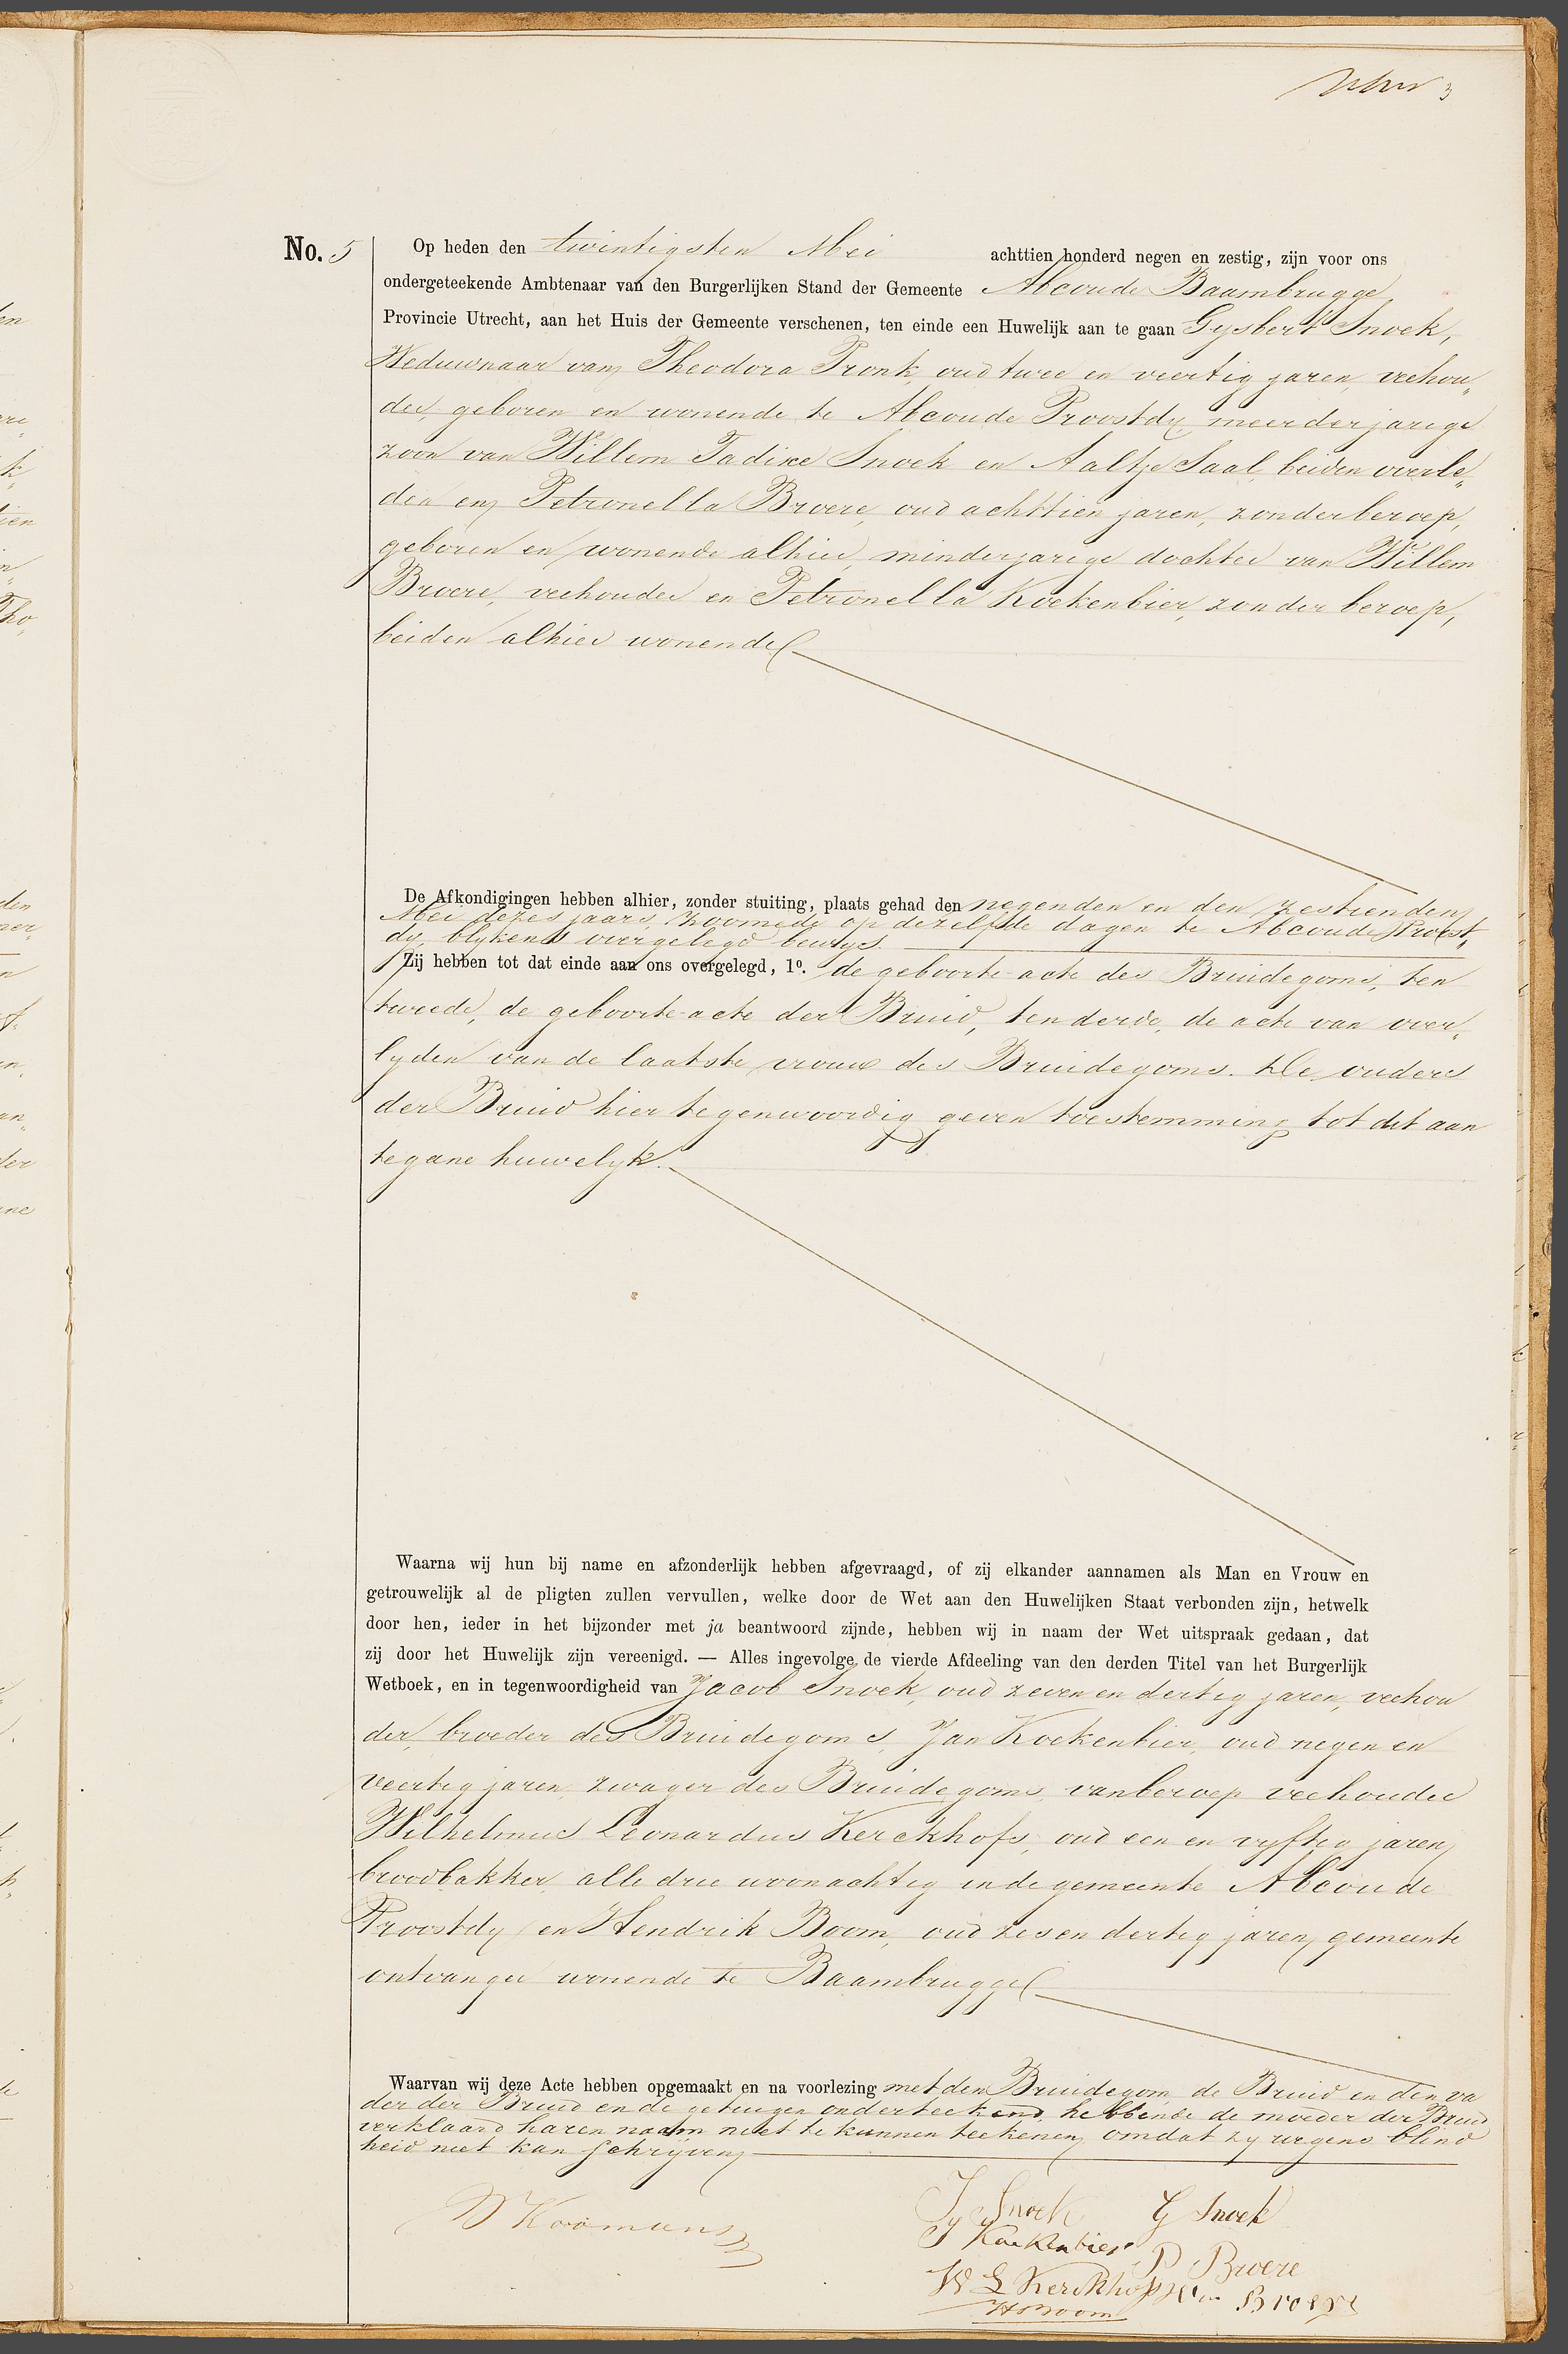 No. 5
Op heden den twintigsten Mei achttien honderd negen en zestig, zijn voor ons
ondergeteekende Ambtenaar van den Burgerlijken Stand der Gemeente Abcoude Baambrugge,
Provincie Utrecht, aan het Huis der Gemeente verschenen, ten einde een Huwelijk aan te gaan Gysbert Snoek,
Weduwnaar van Theodora Pronk, oud twee en veertig jaren, veehou„
der, geboren en wonende te Abcoude Proostdy meerderjarige
zoon van Willem Snoek en Aaltje Saal, beiden overle„
den en Petronella Broere, oud achttien jaren, zonder beroep,
geboren en wonende alhier, minderjarige dochter van Willem
Broere, veehouder en Petronella Koekenbier, zonder beroep,
beiden alhier wonende
De Afkondigingen hebben alhier, zonder stuiting, plaats gehad den negenden en den zestienden
Mei dezes jaars, zoomede op dezelfde dagen te Abcoude Proost„
dy, blykens overgelegd bewys.
Zij hebben tot dat einde aan ons overgelegd, 1º. de geboorte-acte des Bruidegoms, ten
tweede, de geboorte-acte der Bruid, ten derde, de acte van over„
lyden van de laatste vrouw des Bruidegoms. De ouders
der Bruid hier tegenwoordig geven toestemming tot dit aan
tegane huwelyk.
Waarna wij hun bij name en afzonderlijk hebben afgevraagd, of zij elkander aannamen als Man en Vrouw en
getrouwelijk al de pligten zullen vervullen, welke door de Wet aan den Huwelijken Staat verbonden zijn, hetwelk
door hen, ieder in het bijzonder met ja beantwoord zijnde, hebben wij in naam der Wet uitspraak gedaan, dat
zij door het Huwelijk zijn vereenigd. — Alles ingevolge de vierde Afdeeling van den derden Titel van het Burgerlijk
Wetboek, en in tegenwoordigheid van Jacob Snoek, oud zeven en dertig jaren, veehou
der, broeder des Bruidegoms, Jan Koekenbier, oud negen en
veertig jaren, zwager des Bruidegoms, van beroep veehouder
Wilhelmus Leonardus Kerckhofs, oud een en vyftig jaren,
broodbakker, alle drie woonachtig in de gemeente Abcoude
Proostdy en Hendrik Boom, oud zes en dertig jaren, gemeente
ontvanger wonende te Baambrugge
Waarvan wij deze Acte hebben opgemaakt en na voorlezing met den Bruidegom, de Bruid en den va
der der Bruid en de getuigen onderteekend, hebbende de moeder der Bruid
verklaard haren naam niet te kunnen teekenen, omdat zy wegens blind
heid niet kan schrijven
J Snoek G Snoek
Koomans
J Koekenbier P Broere
W L Kerckhofs Wm Broere
H Boom